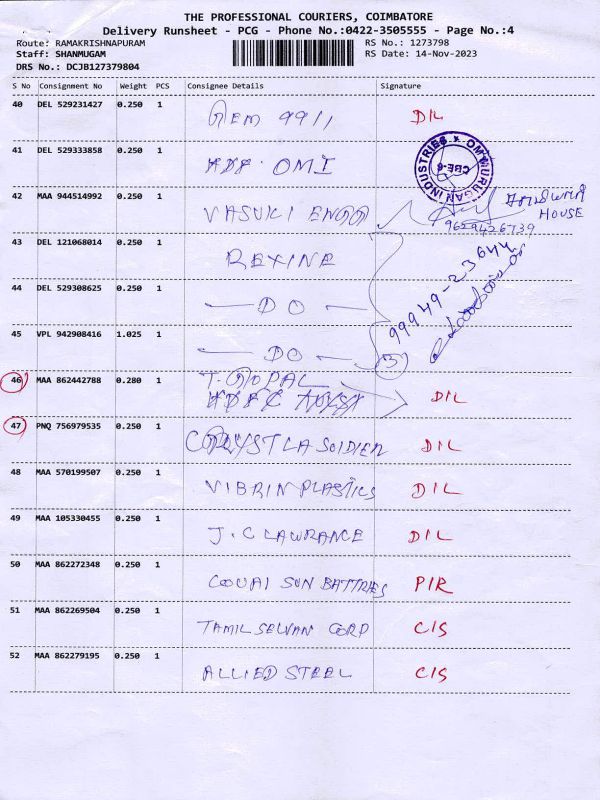 THE PROFESSIONAL COURIERS, COIMBATORE
Delivery Runsheet - PCG - Phone No.:0422-3505555 - Page No.:4
Route: RAMAKRISHNAPURAM RS No.: 1273798
Staff: SHANMUGAM RS Date: 14-Nov-2023
DRS No.: DCJB127379804
S No Consignment No Weight PCS Consignee Details Signature
40 DEL 529231427 0.250 1 GEM 9911 D/L
41 DEL 529333858 0.250 1 OMI
INDUSTRIES * OM MURUGAN
CBE-6
42 MAA 944514992 0.250 1 VASUKI ENGG
HOUSE
9629426739
43 DEL 121068014 0.250 1 REXINE
99949-23644
44 DEL 529308625 0.250 1 — DO —
45 VPL 942908416 1.025 1 — DO — 3)
46 MAA 862442788 0.280 1 T. GOPAL D/L
47 PNQ 756979535 0.250 1 D/L
48 MAA 570199507 0.250 1 VIBRIN PLASTICS D/L
49 MAA 105330455 0.250 1 J.C LAWRANCE D/L
50 MAA 862272348 0.250 1 COVAI SUN BATTRIES P/R
51 MAA 862269504 0.250 1 TAMIL SELVAN CORP C/S
52 MAA 862279195 0.250 1 ALLIED STEEL C/S